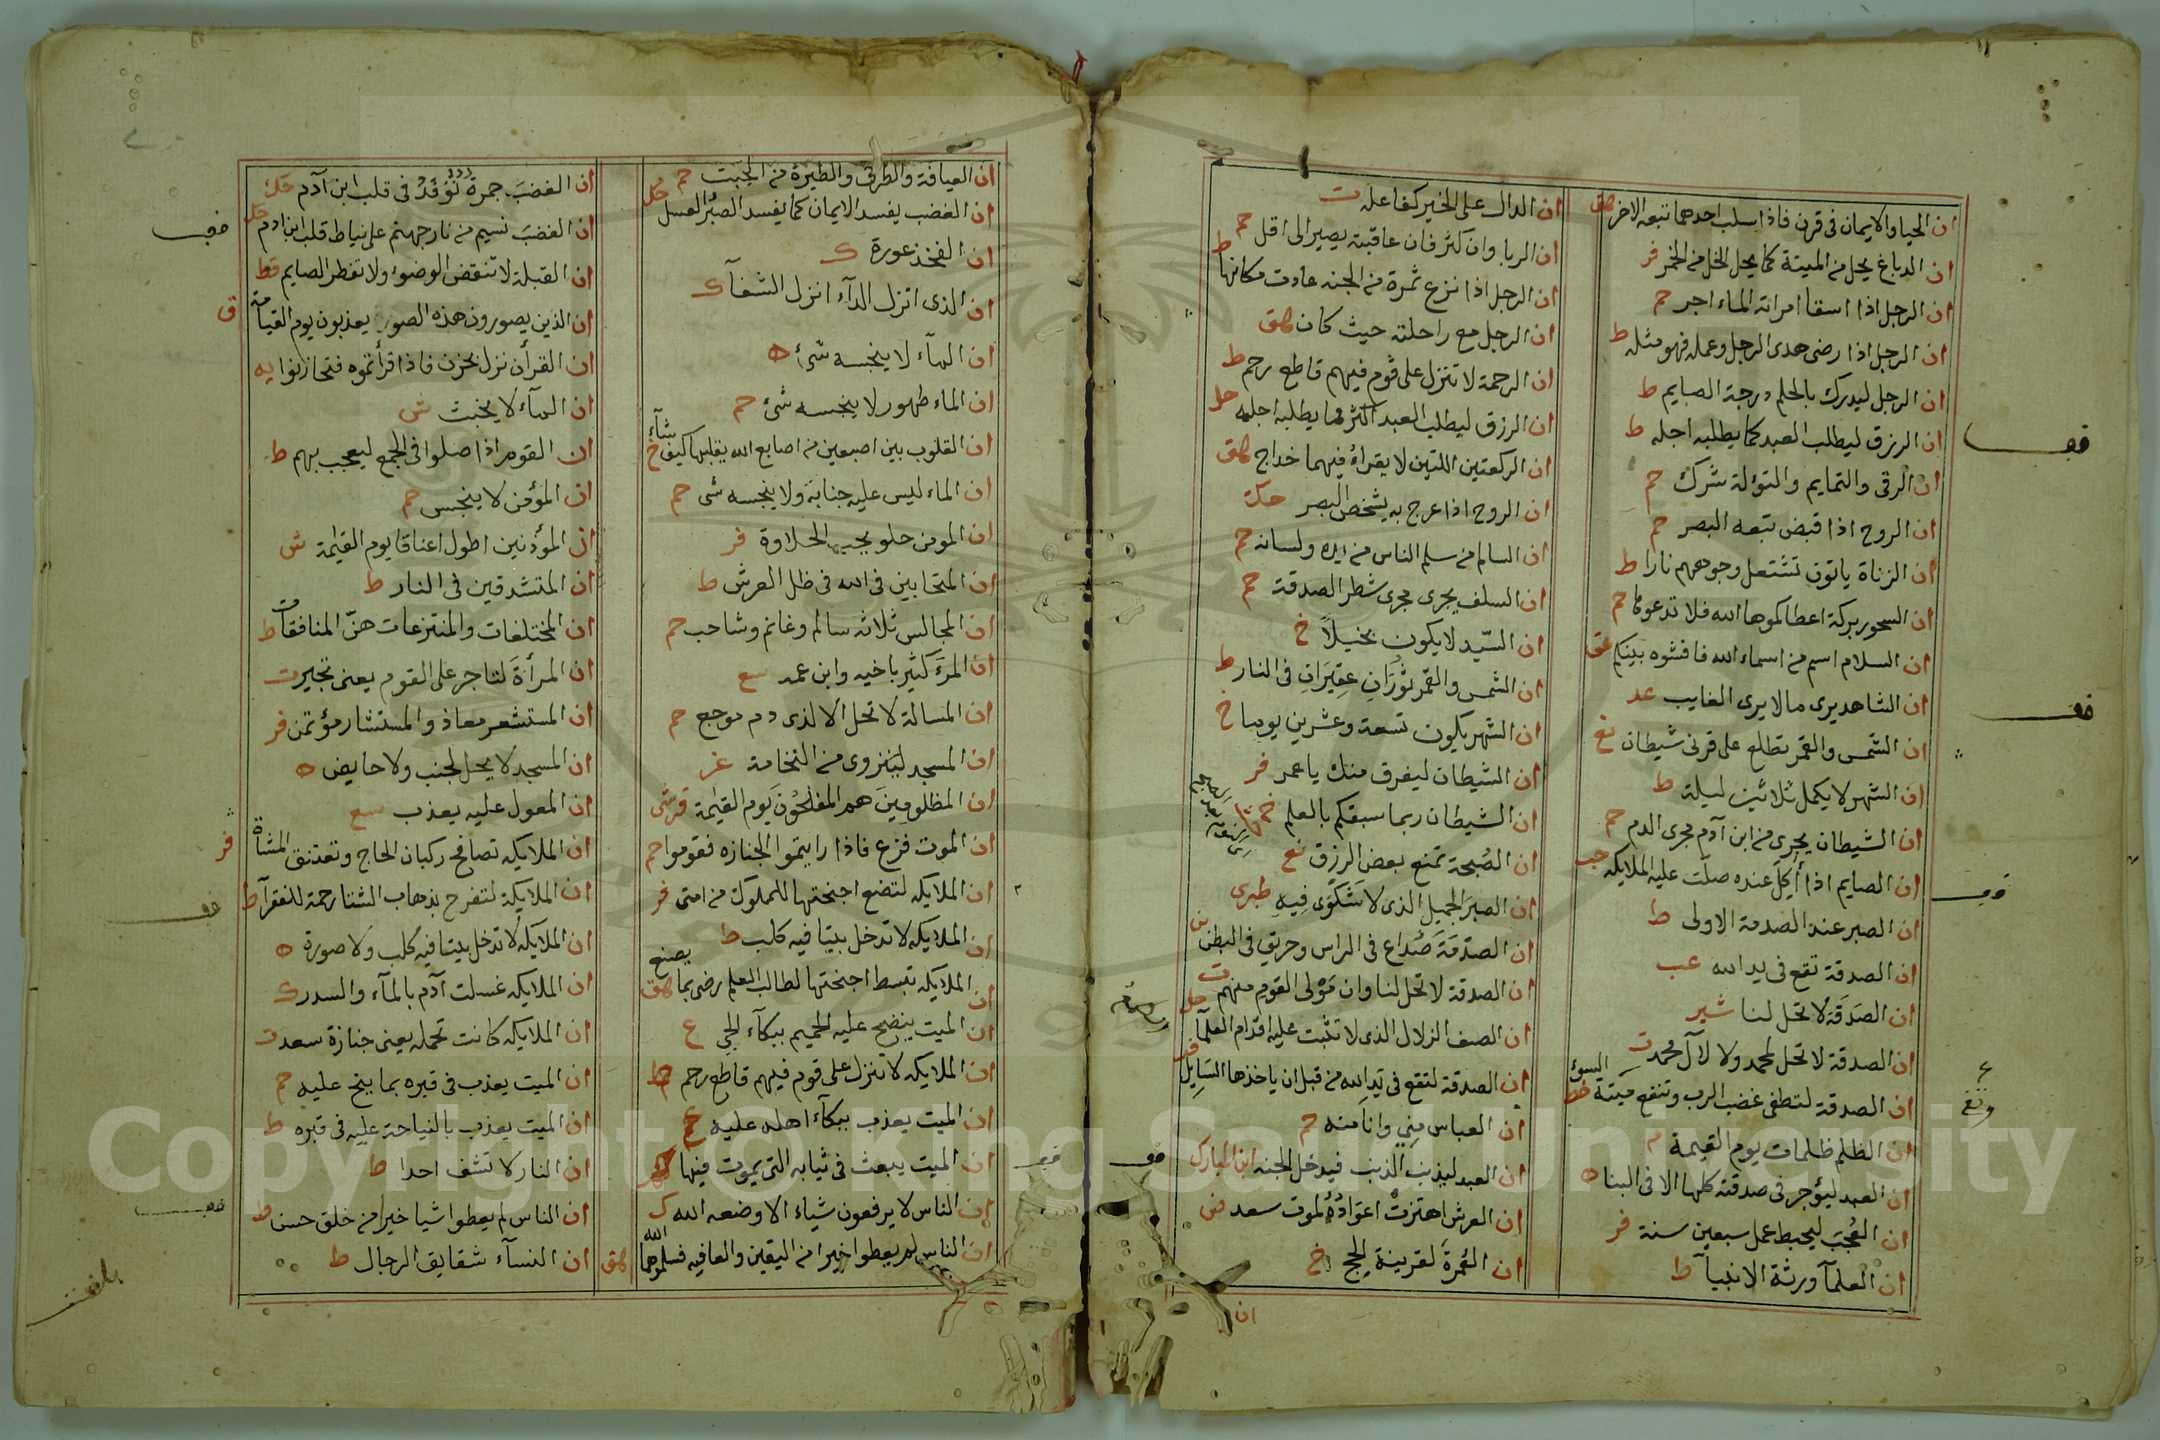 ان الحيا والايمان فى قرن فاذا سلب احدهما تبعه الاخر هق
ان الدباغ يحل من الميتة كما يحل الخل من الخمر فر
ان الرجل اذا اسقا امراته الماء اجر حم
ان الرجل اذا رضى هدى الرجل وعمله فهو مثله ط
ان الرجل ليدرك بالحلم درجة الصايم ط
ان الرزق ليطلب العبد كما يطلبه اجله ط
ان الرقى والتمايم والتولة شرك حم
ان الروح اذا قبض تبعه البصر حم
ان الزناة ياتون تشتعل وجوههم نارا ط
ان السحور بركة اعطاكموها الله فلا تدعوها حم
ان السلام اسم من اسماء الله فافشوه بينكم عق
ان الشاهد يرى مالا يرى الغايب عد
ان الشمس والقمر تطلع على قرنى شيطان نع
ان الشهر لا يكمل ثلاثين ليلة ط
ان الشيطان يجرى من ابن آدم مجرى الدم حم
ان الصايم اذا أُكِلَ عنده صلت عليه الملايكه حب
ان الصبر عند الصدمة الاولى ط
ان الصدقة تقع فى يد الله عب
ان الصَدَقَة لا تحل لنا شير
ان الصدقة لا تحل لمحمد ولا لآل محمد ت
ان الصدقة لتطفى غضب الرب وتنفع ميتة السوء خط
ان الظلم ظلمات يوم القيمة م
ان العبد ليؤجر فى صدقته كلها الا فى البنا ه
ان العُجبَ ليحبط عمل سبعين سنة فر
ان العلمآ ورثة الانبيا ط
ان الدال على الخير كفاعله ت
ان الربا وان كثر فان عاقبته يصير الى اقل حم
ان الرجل اذا نزع ثمرة من الجنه عادت مكانها ط
ان الرجل مع راحلته حيث كان هق
ان الرحمة لا تنزل على قوم فيهم قاطع رحم ط
ان الرزق ليطلب العبد اكثر مما يطلبه اجله حل
ان الركعتين اللتين لا يقراء فيهما خداج هق
ان الروح اذا عرج به يشخص البصر حك
ان السالم من سلم الناس من يده ولسانه حم
ان السلف يجرى مجرى شطر الصدقة حم
ان السيّد لا يكون بخيلاً خ
ان الشمس والقمر ثَورَانِ عقيرَانِ فى النار ط
ان الشهر يكون تسعة وعشرين يوما خ
ان الشيطان ليفرق منك يا عمر فر
ان الشيطان ربما سبقكم بالعلم خ
ان الصُبحة تمنع بعض الرزق نع
ان الصبرَ الجميل الذى لا شَكوَى فِيهِ طبرى
ان الصدَقَةَ صُدَاع فى الراس وحريق فى البطن
ان الصدقة لا تحل لنا وان مَوْلى القوم منهم ت
ان الصفا الزلال الذى لا تثبت عليه اقدام العلمآ
ان الصدقة لتقع فى يَدِ الله من قبل ان ياخذها السَايِل
ان العباس مِنِى وانا منه حم
ان العبد ليذنب الذنب فيدخل الجنه ابن المبارك
ان العرش اهتزت اعوَادُهُ لموت سعد ض
ان العُمرةَ لقرينة الحج خ
ان
ان العيافة والطرق والطيرة من الجبت حم
ان الغضب يفسد الايمان كما يفسد الصَبْر العسل
ان الفخذ عورة ك
ان الذى انزل الدآء انزل الشفآ ك
ان المآء لا ينجسه شئ ه
ان الماء طهور لا ينجسه شئ حم
ان القلوب بين اصبعين من اصابع الله يقلبها كيف شآء خ
ان الماء ليس عليه جنابة ولا ينجسه شى حم
ان المومن حلو يحب الحلاوة فر
ان المتحابين فى الله فى ظل العرش ط
ان المجالس ثلاثه سالم وغانم وشاحب حم
ان المرَ كثير باخيه وابن عمه سع
ان المسالة لا تحل الا لذى دم موجع حم
ان المسجد لينزوى من النخامة عز
ان المظلومِينَ هم المفلحُونَ يوم القيٰمة
ان الموت فزع فاذا رايتموا الجنازه فقوموا حم
ان الملايكه لتضع اجنحتها للمملوك من امتى فر
ان الملايكه لا تدخل بيتا فيه كلب ط
ان الملايكه تبسط اجنحتها لطالب العلم رضى بما يصنع هق
ان الميت ينضح عليه الحميم ببكآء الحى ع
ان الملايكه لا تنزل على قوم فيهم قاطع رحم ط
ان الميت يعذب ببكآء اهله عليه ع
ان الميت يبعث فى ثيابه التى يموت فيها
ان الناس لا يرفعون شياء الا وضعه الله ك
ان الناس لم يعطوا خيرا من اليقين والعافيه فسلوهما الله هق
ان الغضبَ جمرة تُوقَدُ فى قلب ابن آدم حك
ان الغضبَ نسيم من نار جهنم على نياط قلب ابن ادم حل
ان القبلة لا تنقض الوضوء ولا تفطر الصايم قط
ان الذين يصورون هذه الصور يعذبون يوم القيامة ق
ان القرأن نزل بحزن فاذا قرأتموه فتحازنوا يه
ان المآء لا يخبث ش
ان القوم اذا صلوا فى الجمع ليعجب بهم ط
ان المؤمن لا ينجس حم
ان المؤذنين اطول اعناقا يوم القيٰمة ش
ان المتشدقين فى النار ط
ان المختلعات والمنتزعات هنّ المنافقات ط
ان المرأةَ لتاجر على القوم يعنى تجير ت
ان المستشعر معاذ والمستشار مؤتمن فر
ان المسجد لا يحل لجنب ولا حايض ه
ان المعول عليه يعذب سع
ان الملايكه تصافح ركبان الحاج وتعتنق المشاة فر
ان الملايكة لتفرح بذهاب الشتا رحمة للفقرآ ط
ان الملايكه لا تدخل بيتا فيه كلب ولا صورة ه
ان الملايكه غسلت آدم بالمآء والسدر ك
ان الملايكه كانت تحمله يعنى جنازة سعد ت
ان الميت يعذب فى قبره بما ينح عليه حم
ان الميت يعذب بالنياحة عليه فى قبره ط
ان النار لا تشف احدا ط
ان الناس لم يعطوا شيا خيرا من خلق حسن ط
ان النسآء شقايق الرجال ط
Copyright © King Saud University